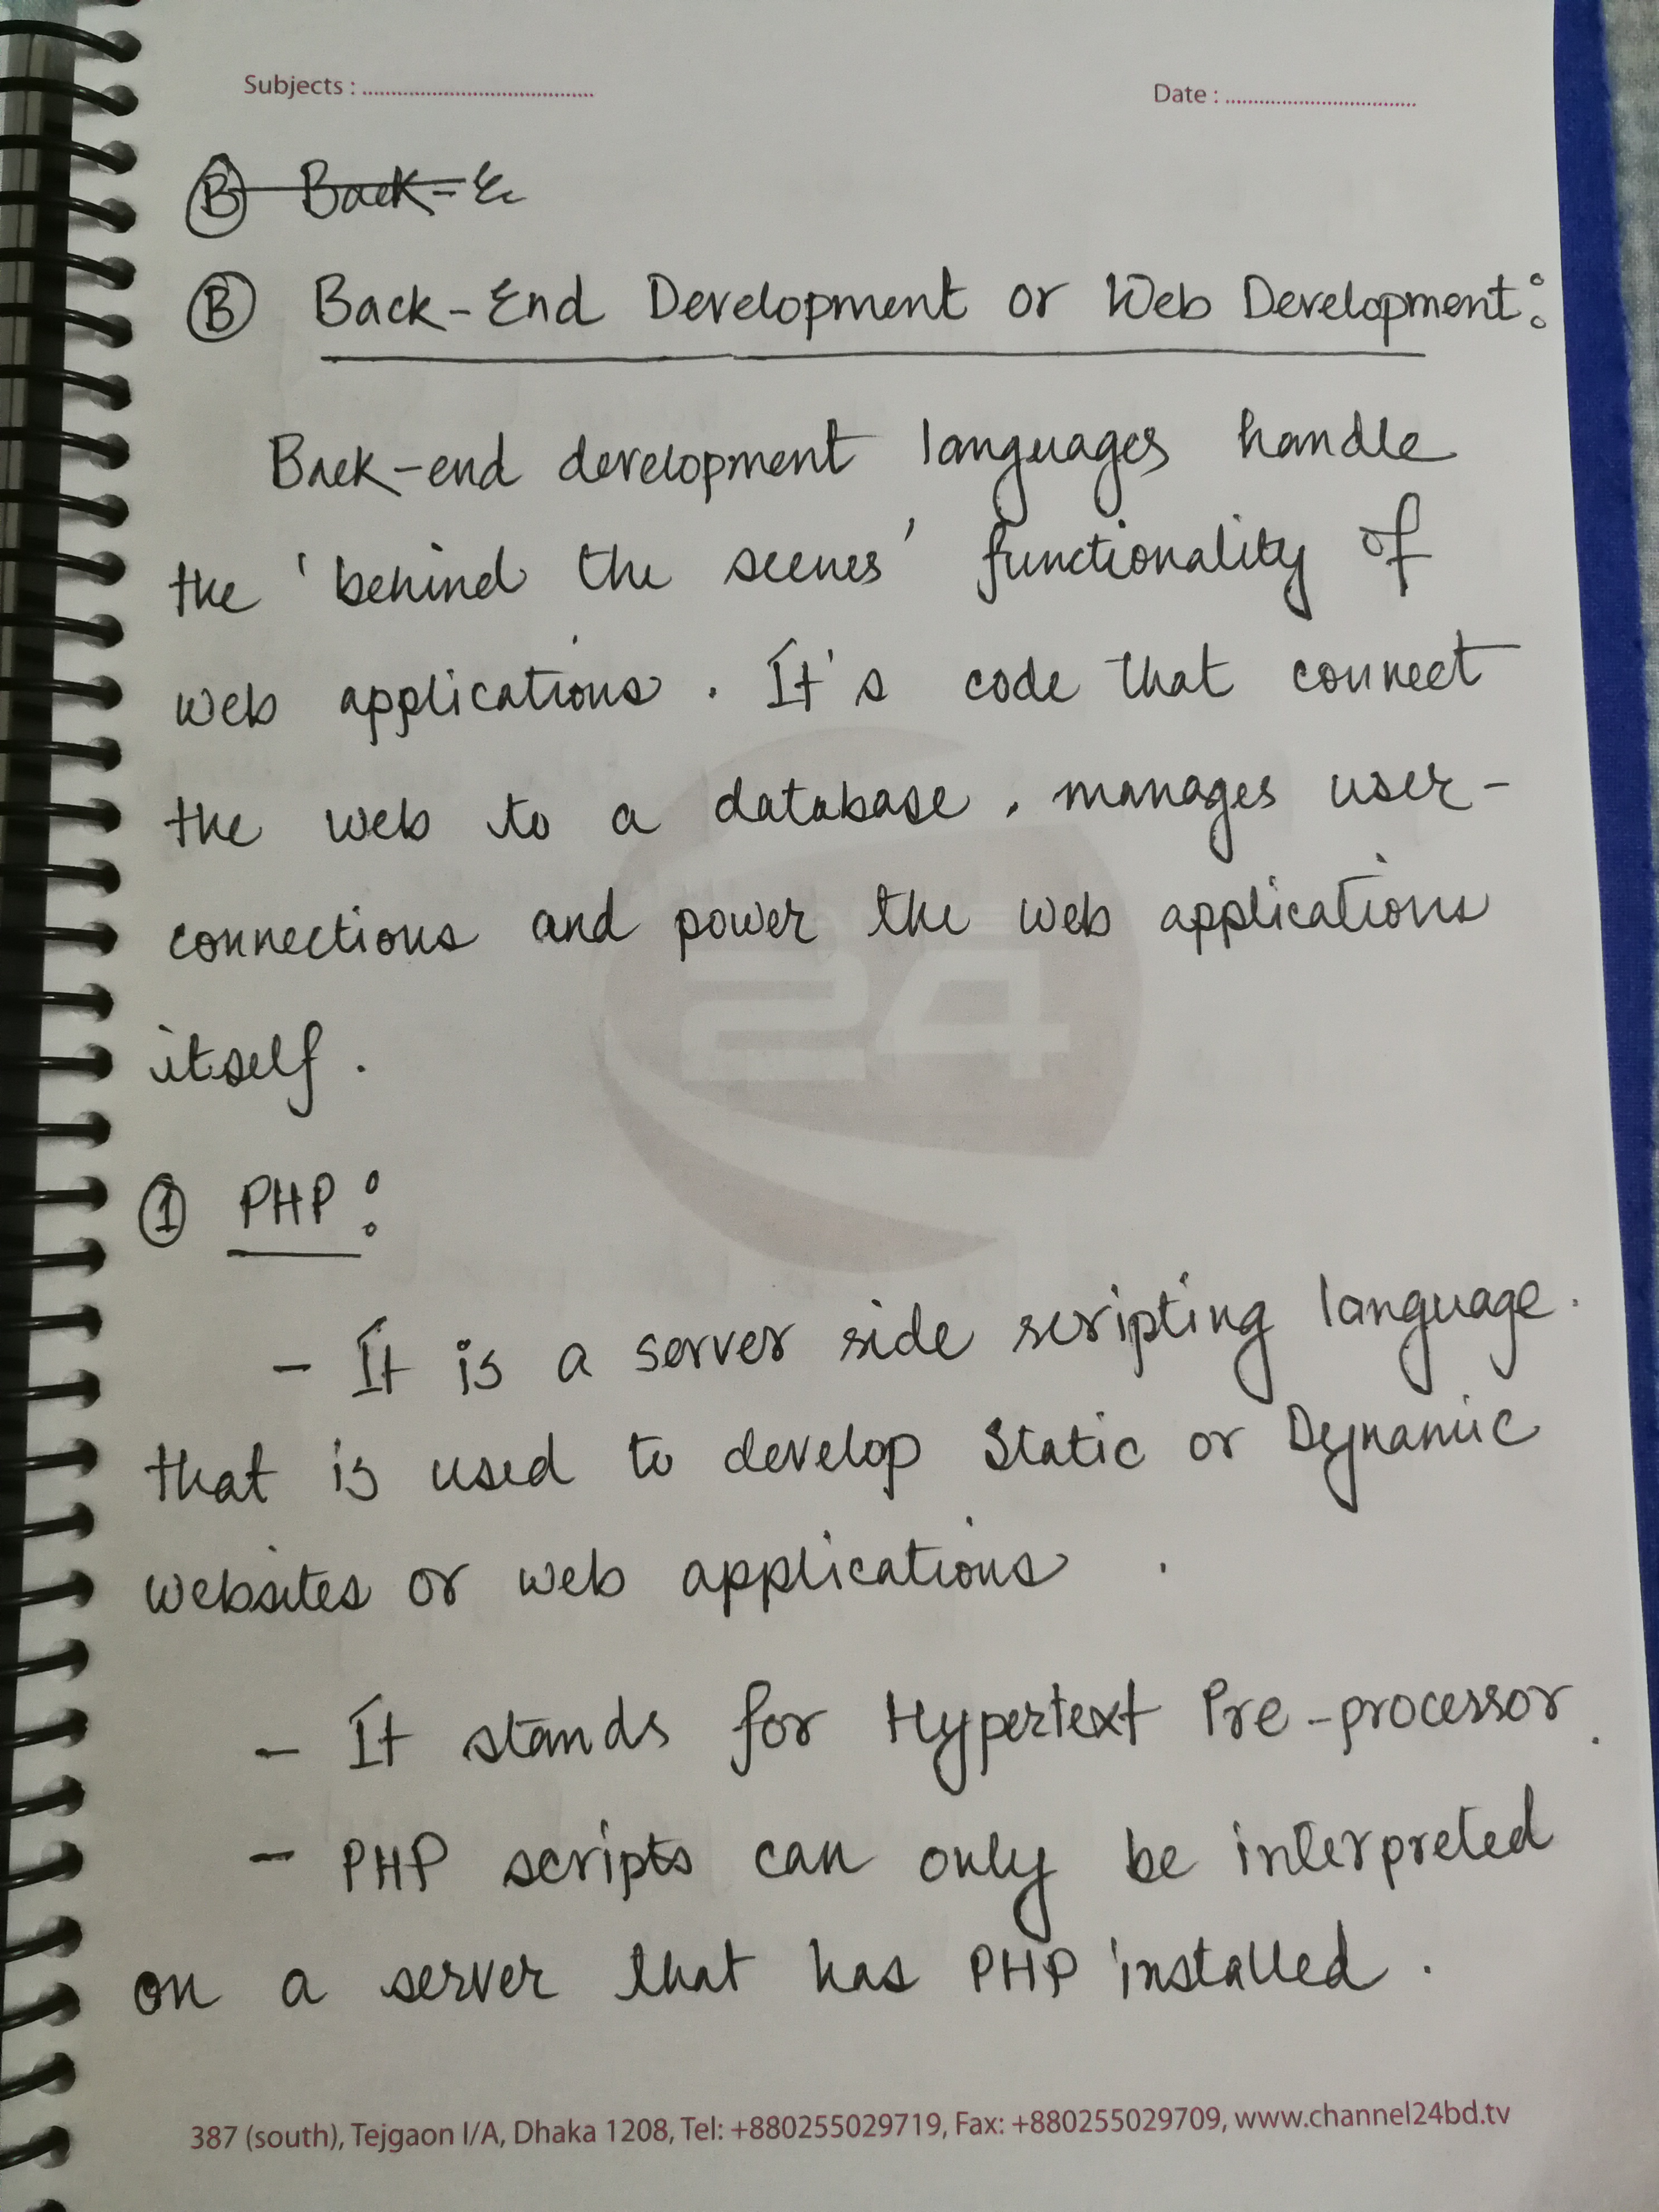 Subjects : ........................................ Date : .................................
Ⓑ Back-E
Ⓑ Back-End Development or Web Development:
Back-end development languages handle
the 'behind the scenes' functionality of
web applications. It's code that connect
the web to a database, manages user-
connections and power the web applications
itself.
24
① PHP:
- It is a server side scripting language.
that is used to develop Static or Dynamic
websites or web applications.
- It stands for Hypertext Pre-processor.
- PHP scripts can only be interpreted
on a server that has PHP installed.
387 (south), Tejgaon I/A, Dhaka 1208, Tel: +880255029719, Fax: +880255029709, www.channel24bd.tv